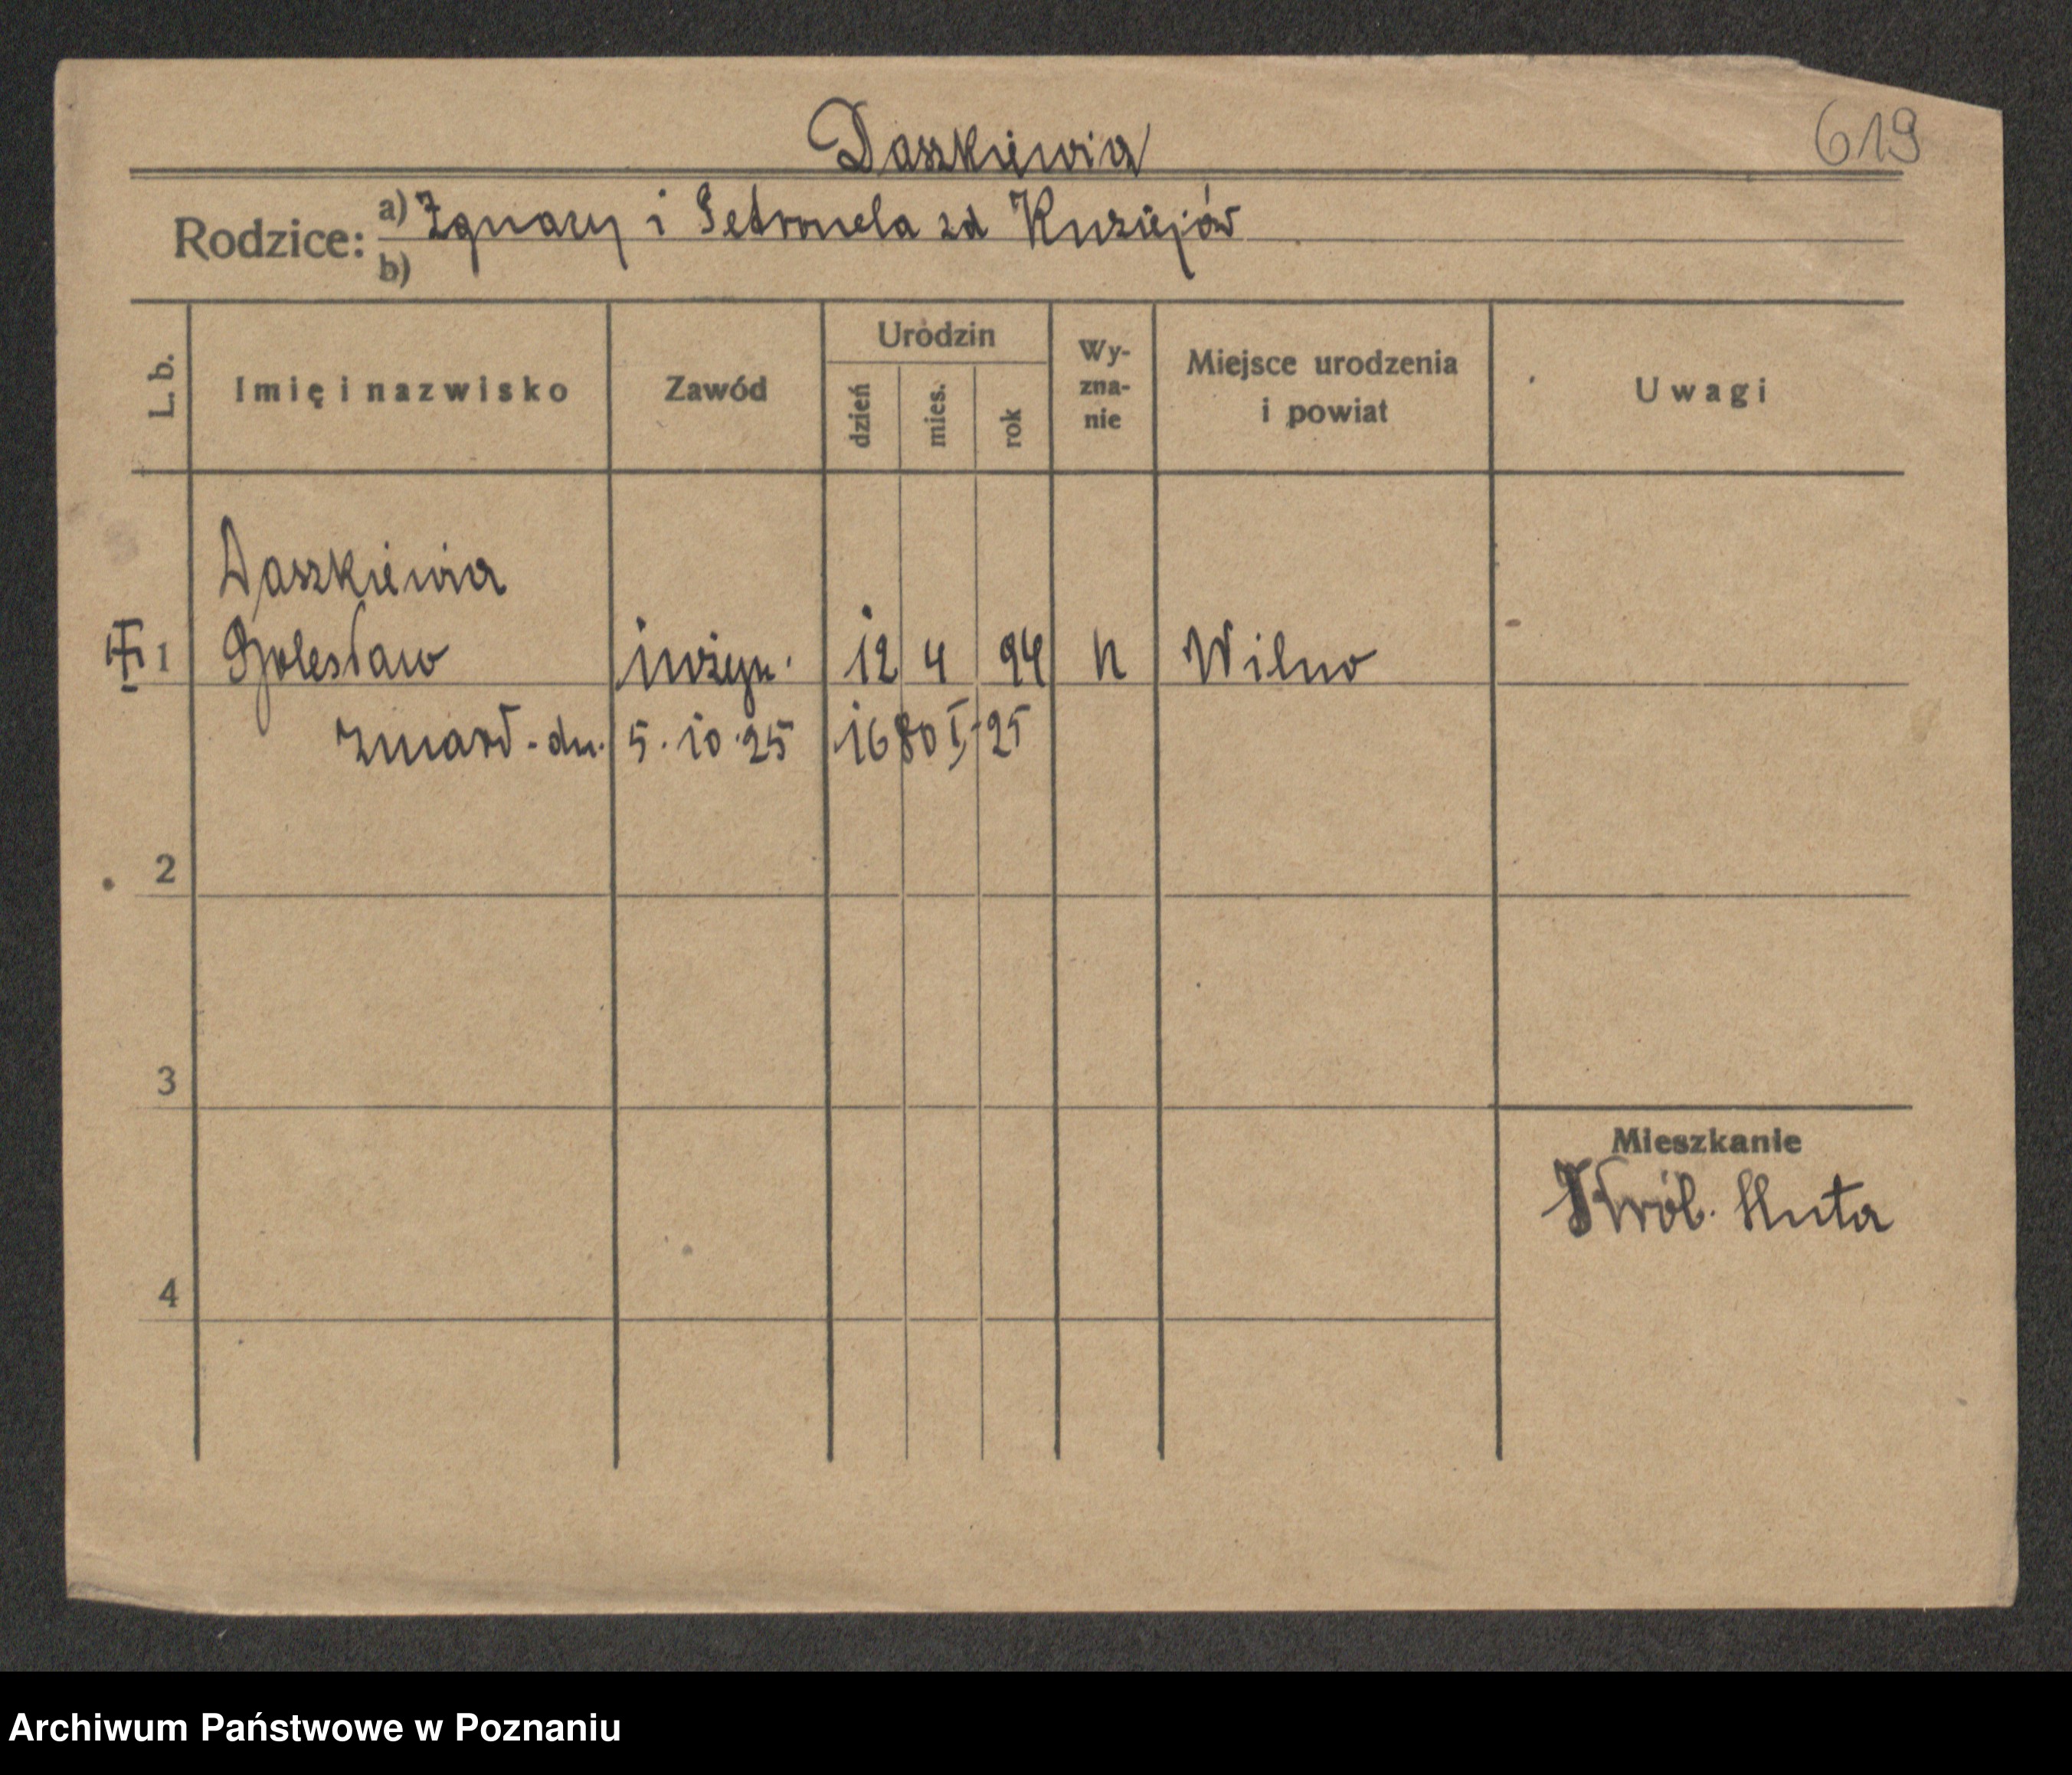 619
Daszkiewicz
Rodzice: a) Ignacy i Petronela zd Kuziejów
b)
L. b. Imię i nazwisko Zawód Urodzin dzień mies. rok Wy-zna-nie Miejsce urodzenia i powiat Uwagi
Daszkiewicz
1 Bolesław inżyn. 12 4 94 k Wilno
zmarł - dn. 5. 10. 25 1680 I - 25
2
3
Mieszkanie
Król. Huta
4
Archiwum Państwowe w Poznaniu